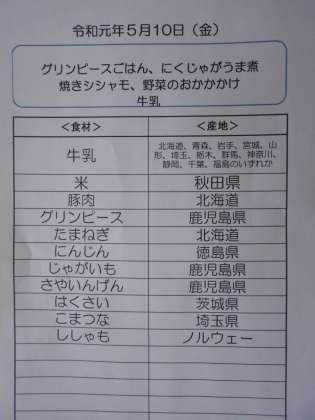 令和元年５月１０日（金）
グリンピースごはん、にくじゃがうま煮
焼きシシャモ、野菜のおかかかけ
牛乳
＜食材＞ ＜産地＞
牛乳 北海道、青森、岩手、宮城、山
形、埼玉、栃木、群馬、神奈川、
静岡、千葉、福島のいずれか
米 秋田県
豚肉 北海道
グリンピース 鹿児島県
たまねぎ 北海道
にんじん 徳島県
じゃがいも 鹿児島県
さやいんげん 鹿児島県
はくさい 茨城県
こまつな 埼玉県
ししゃも ノルウェー